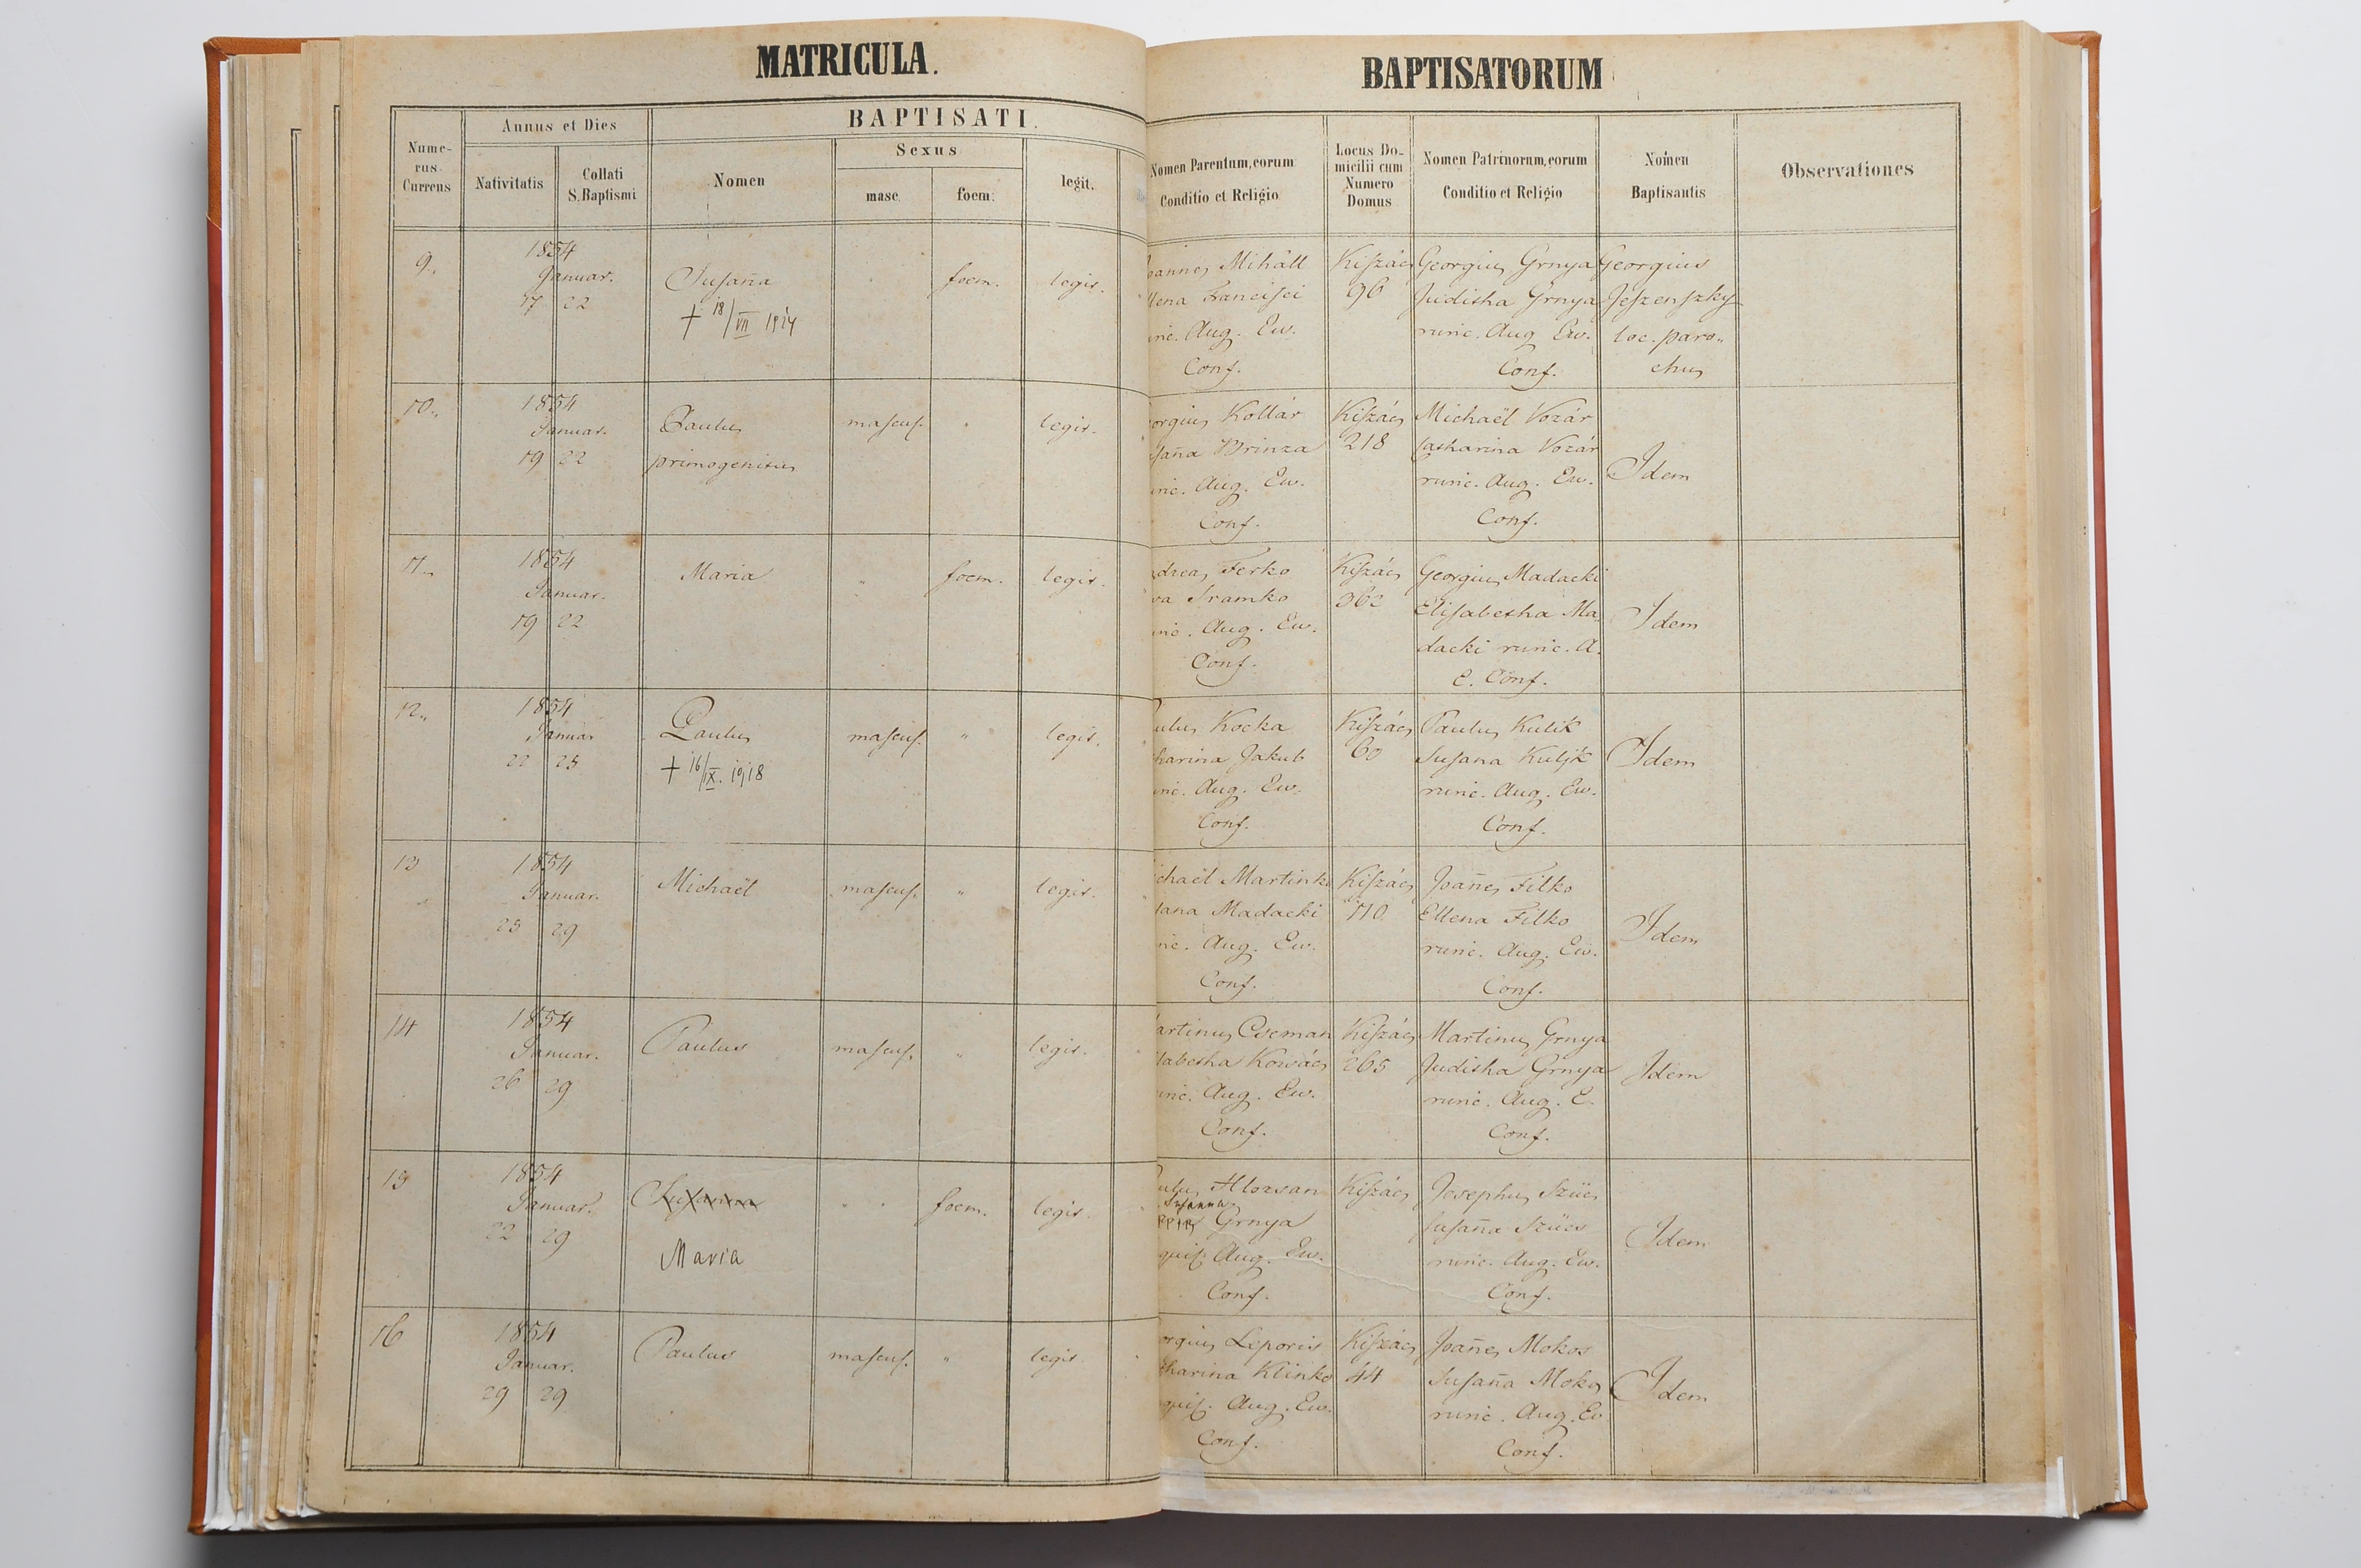 MATRICULA.
BAPTISATORUM
Nume-
rus
Currens
Annus et Dies
Nativitatis
Collati
S. Baptismi
BAPTISATI.
Nomen
Sexus
masc.
foem.
legit.
Nomen Parentum, eorum
Conditio et Religio
Locus Do-
micilii cum
Numero
Domus
Nomen Patrinorum, eorum
Conditio et Religio
Nomen
Baptisantis
Observationes
9.,
1854
Januar.
17 22
Susaña
+ 18/VII 1924
foem.
legit.
Mihall
96
Kiszács
Georgius Grnya
Juditha Grnya
runic. Aug. Ew.
Conf.
Georgius
Jeszenszky
loc. paro„
chus
Aug. Ew.
Conf.
10.,
1854
Januar.
19 22
Paulus
primogenitus
mascul.
legit.
Kollár
Brinza
Aug. Ew.
Conf.
Kiszács
218
Michaël Vozár
Catharina Vozár
runic. Aug. Ew.
Conf.
Idem
11.,
1854
Januar.
19 22
Maria
„
foem.
legit.
Ferko
Sramko
Aug. Ew.
Conf.
Kiszács
362
Georgius Madacki
Elisabetha Ma„
dacki runic. A.
E. Conf.
Idem
12.,
1854
Januar
22 25
Paulus
+ 16/IX. 1918
mascul.
„
legit.
Kocka
Jakub
Aug. Ew.
Conf.
Kiszács
60
Paulus Kulik
Susana Kulik
runic. Aug. Ew.
Conf.
Idem
13
1854
Januar.
25 29
Michaël
mascul.
„
legit.
Madacki
Aug. Ew.
Conf.
Kiszács
110
Joañes Filko
Ellena Filko
runic. Aug. Ew.
Conf.
Idem
14
1854
Januar.
26 29
Paulus
mascul.
„
legit.
Cseman
Kowács
Aug. Ew.
Conf.
Kiszács
265
Martinus Grnya
Juditha Grnya
runic. Aug. E.
Conf.
Idem
15
1854
Januar.
22 29
Susanna
Maria
foem.
legit.
Susanna
Grnya
Aug. Ew.
Conf.
Kiszács
Josephus Szücs
Susaña Szücs
runic. Aug. Ew.
Conf.
Idem
16
1854
Januar.
29 29
Paulus
mascul.
„
legit
Leporis
Klinko
Aug. Ew.
Conf.
Kiszács
44
Joañes Mokos
Susaña Mokos
runic. Aug. Ev
Conf.
Idem